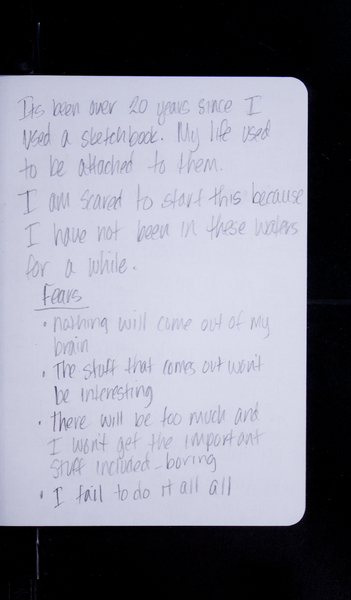 Its been over 20 years since I
used a sketchbook. My life used
to be attached to them.
I am scared to start this because
I have not been in these waters
for a while.
Fears
• nothing will come out of my
brain
• The stuff that comes out won't
be interesting
• there will be too much and
I won't get the important
stuff included - boring
• I fail to do it all all